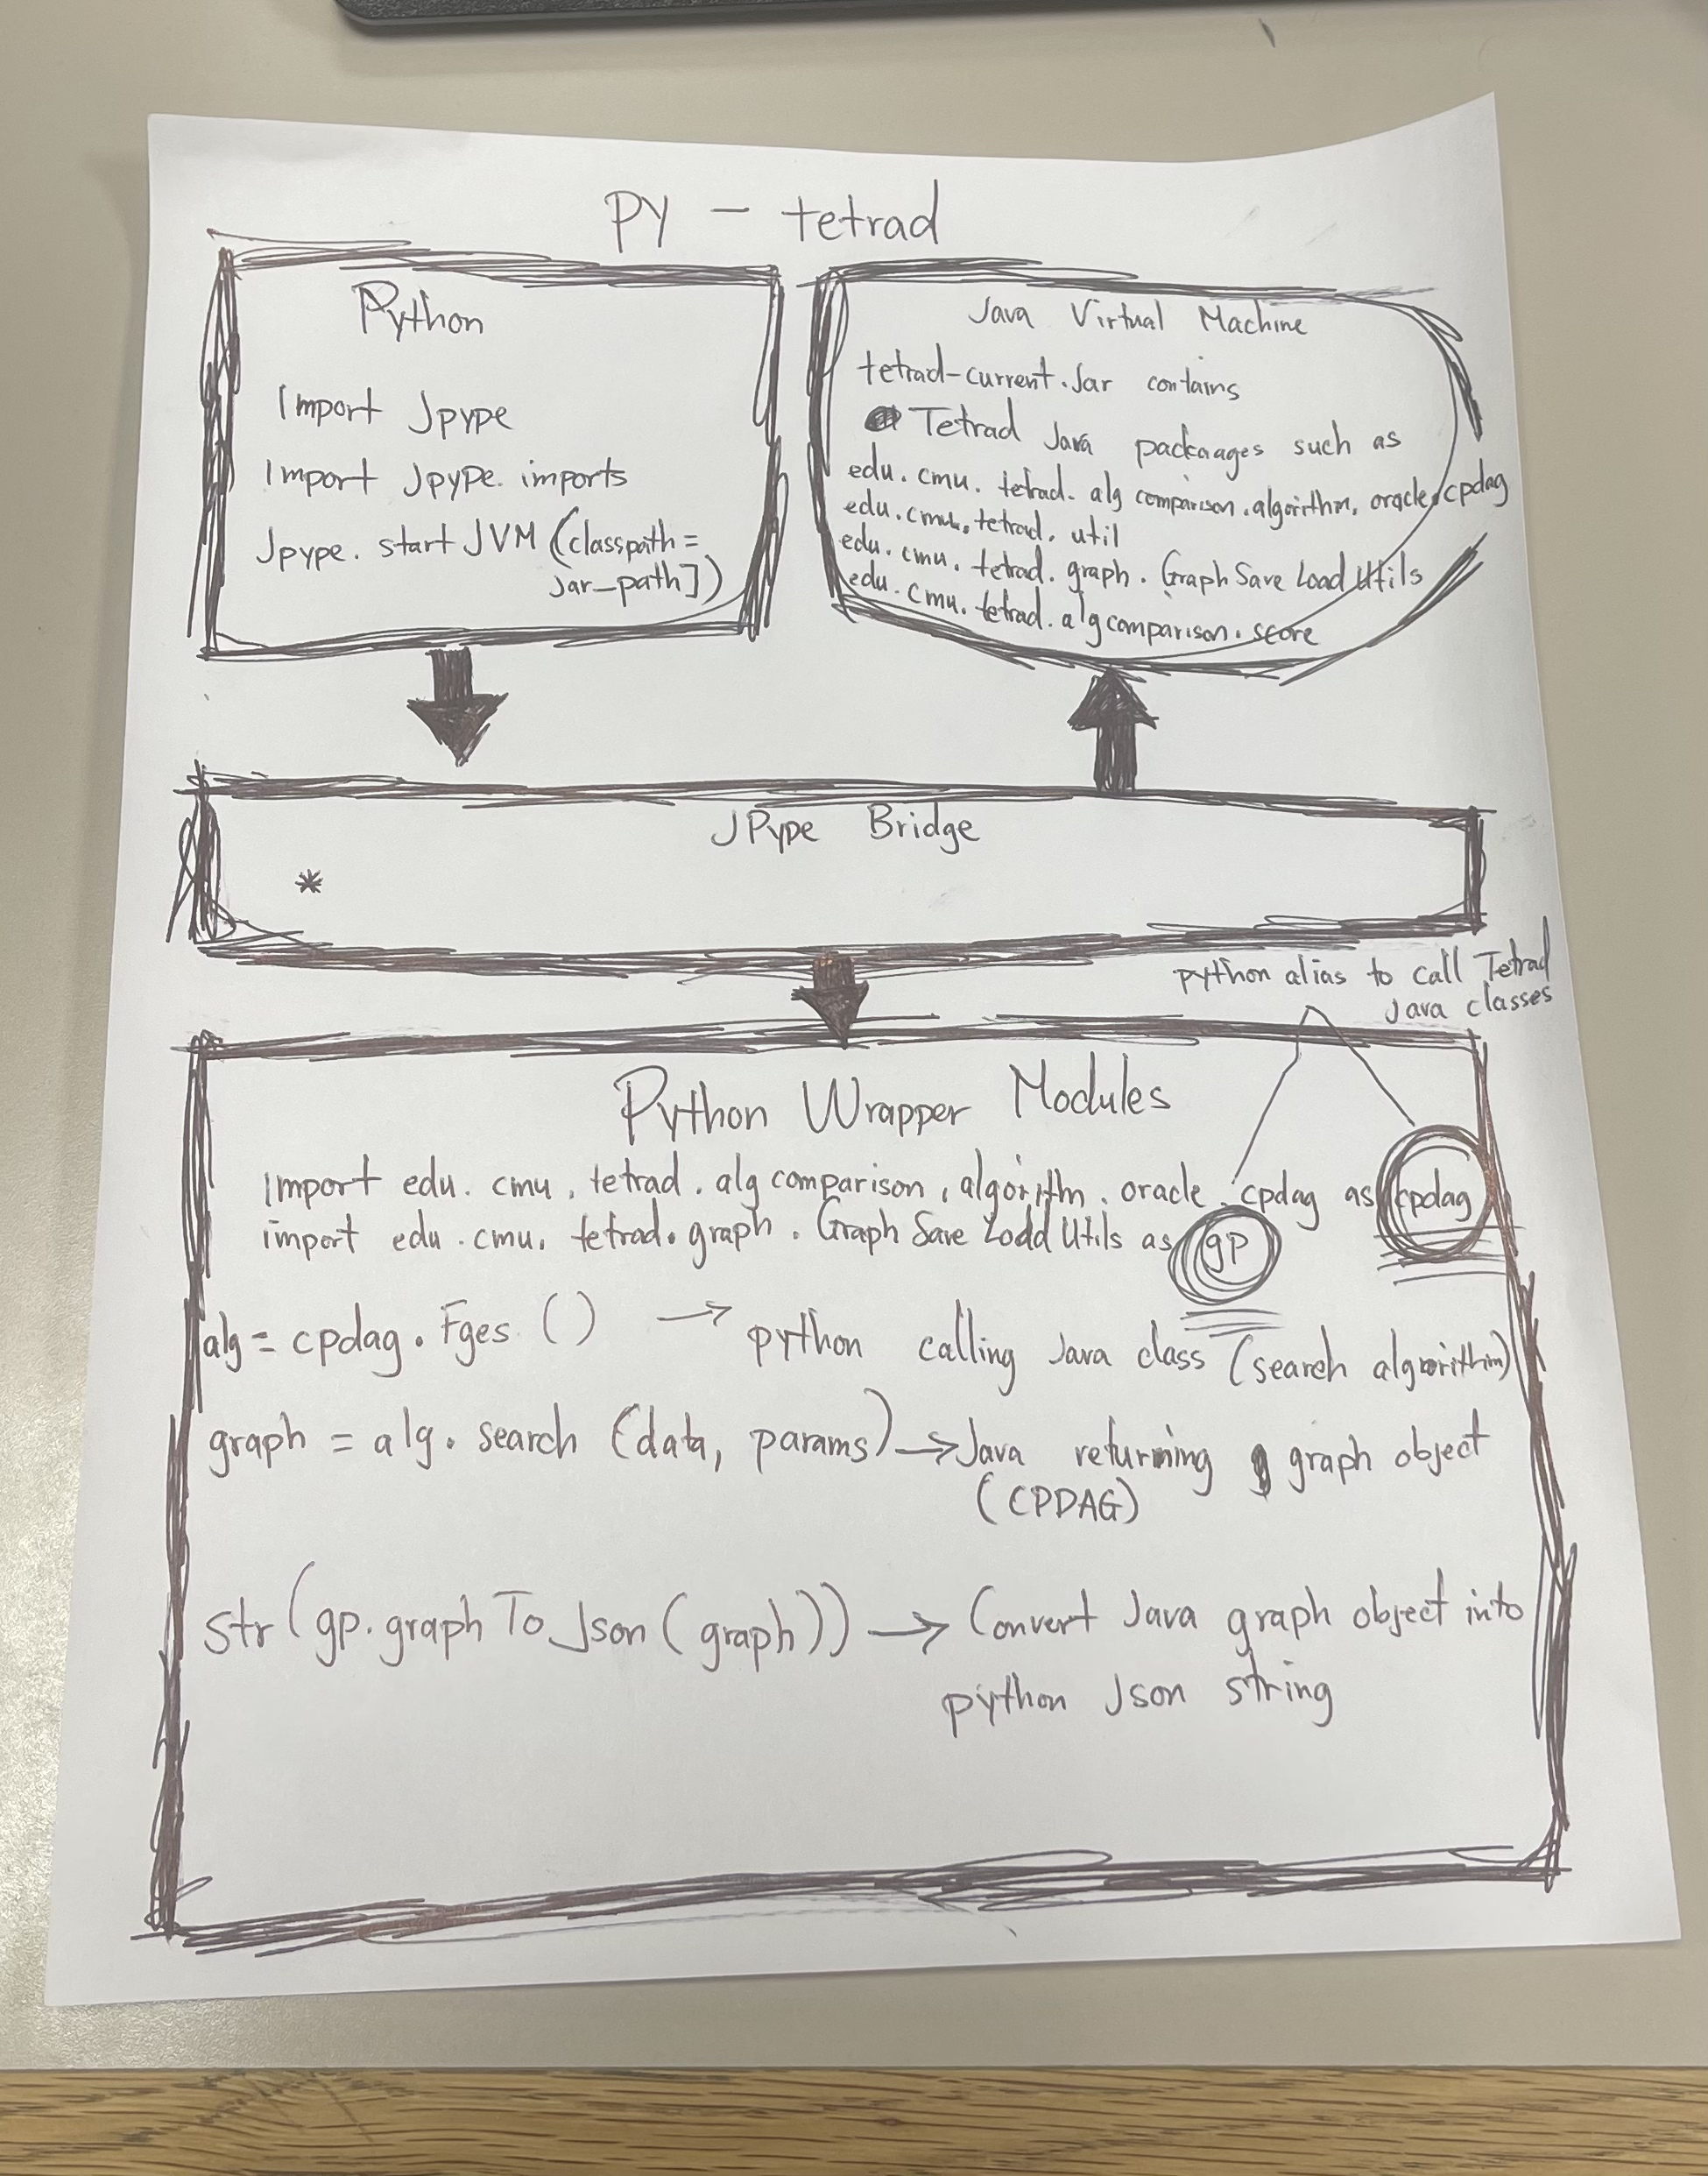 PY - tetrad
Python
Import Jpype
Import Jpype. imports
Jpype. start JVM (classpath =
Jar_path])
Java Virtual Machine
tetrad-current.Jar contains
Tetrad Java packaages such as
edu. cmu. tetrad. alg comparison. algorithm, oracle. cpdag
edu. cmu. tetrad. util
edu. cmu. tetrad. graph. Graph Save Load Utils
edu. cmu. tetrad. alg comparison. score
JPype Bridge
*
python alias to call Tetrad
Java classes
Python Wrapper Modules
Import edu. cmu. tetrad. alg comparison. algorithm. oracle. cpdag as cpdag
import edu. cmu. tetrad. graph. Graph Save Lodd Utils as gp
alg = cpdag. Fges () → python calling Java class (search algorithm)
graph = alg. search (data, params) → Java returning graph object
(CPDAG)
Str (gp. graph To Json (graph)) → Convert Java graph object into
python Json string